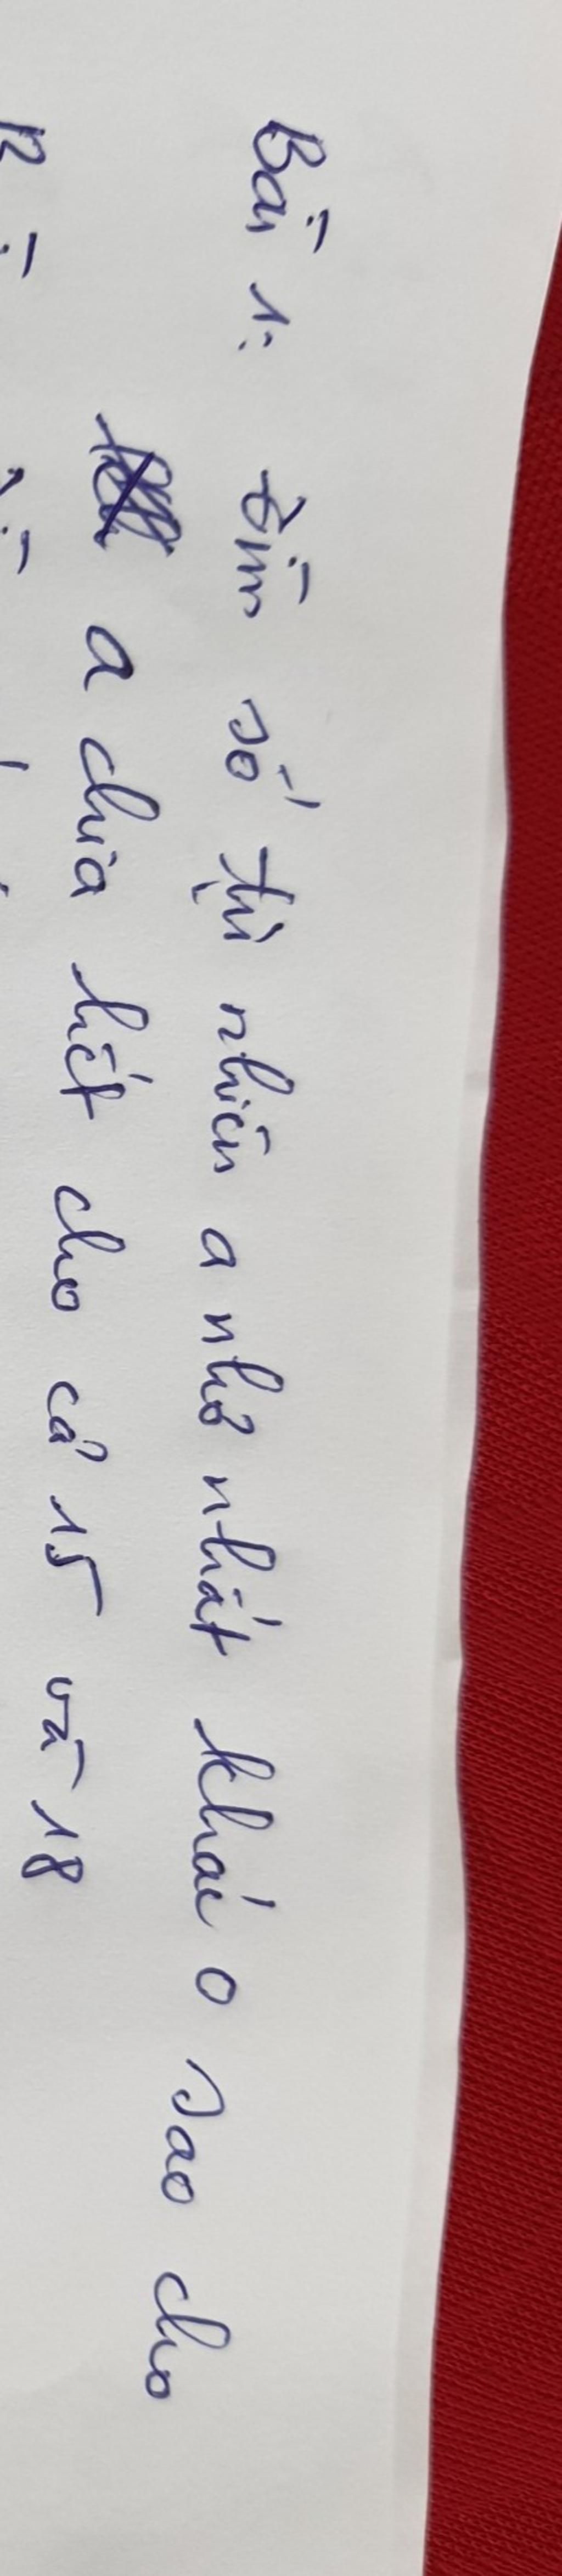 Bài 1: tìm số tự nhiên a nhỏ nhất khác 0 sao cho
a chia hết cho cả 15 và 18